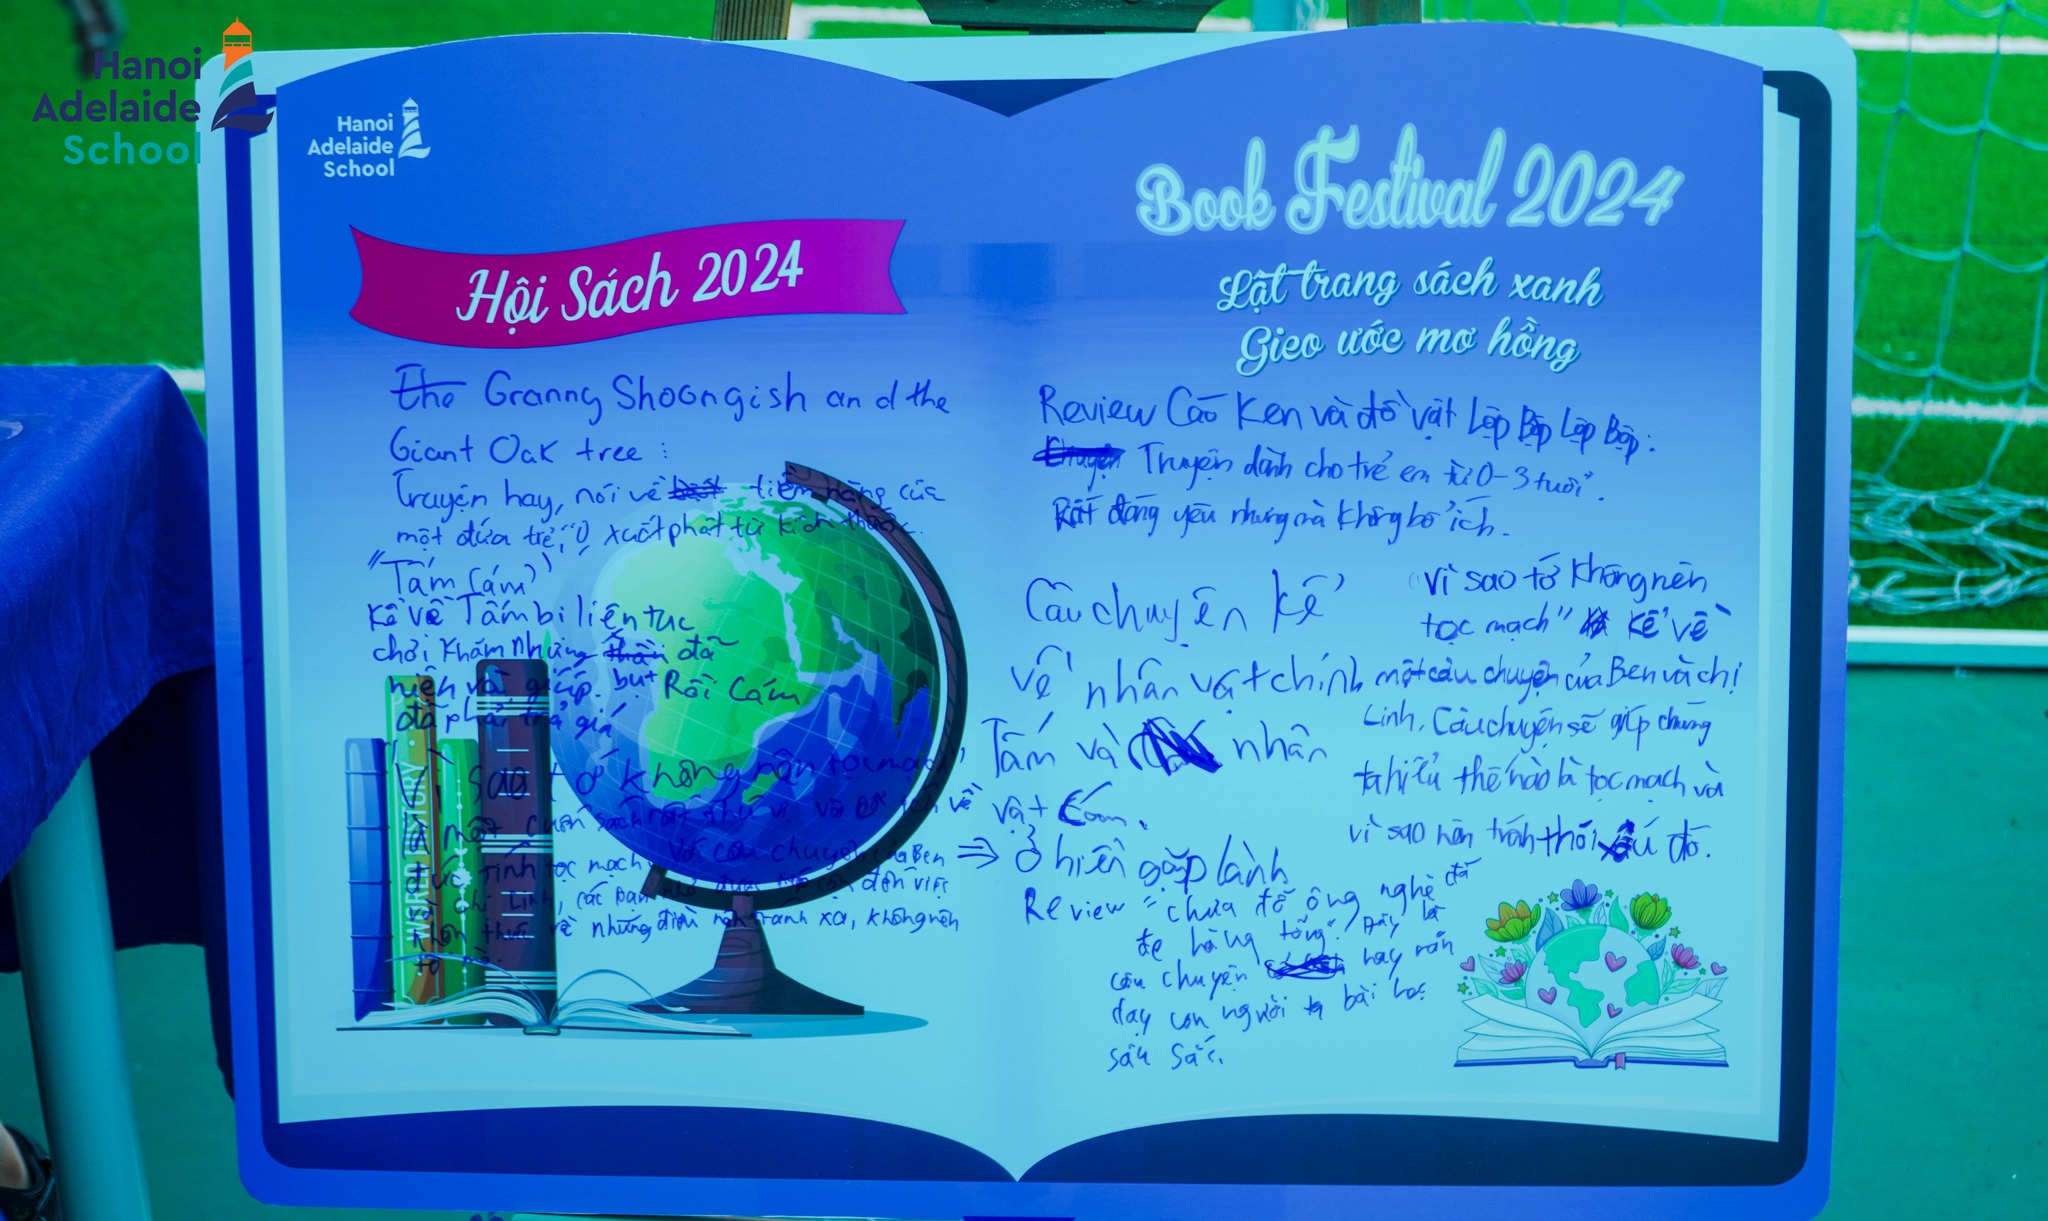 Hanoi
Adelaide
School
Hanoi
Adelaide
School
Hội Sách 2024
The Granny Shoongish and the
Giant Oak tree :
Truyện hay, nói về tiềm năng của
một đứa trẻ, xuất phát từ kích thước.
"Tấm Cám"
kể về Tấm bị liên tục
chơi khăm nhưng đã
hiền và giúp. bụt Rồi Cám
đã phải trả giá
"Vì sao tớ không nên tọc mạch"
là một cuốn sách rất thú vị và bổ ích về
đức tính tọc mạch. Với câu chuyện của Ben
và chị Linh, các bạn nhỏ đến việc
thói về những điều nên tránh xa, không nên
tò mò.
WORLD HISTORY
Book Festival 2024
Lật trang sách xanh
Gieo ước mơ hồng
Review Cáo Ken và đồ vật Lộp Bộp Lộp Bộp:
Truyện dành cho trẻ em từ 0-3 tuổi.
Rất đáng yêu nhưng mà không bổ ích.
Câu chuyện kể
về nhân vật chính
Tấm và nhân
vật Cám.
⇒ Ở hiền gặp lành
"Vì sao tớ không nên
tọc mạch" kể về
một câu chuyện của Ben và chị
Linh. Câu chuyện sẽ giúp chúng
ta hiểu thế nào là tọc mạch và
vì sao nên tránh thói xấu đó.
Review "chưa đỗ ông nghè đã
đe hàng tổng". Đây là
câu chuyện hay răn
dạy con người ta bài học
sâu sắc.